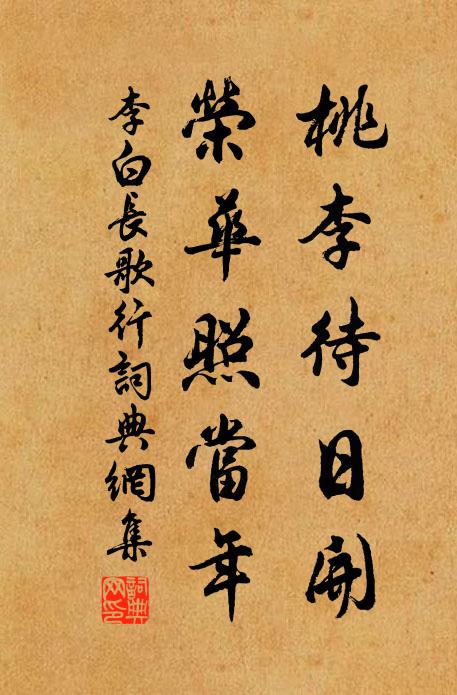 桃李待日開
榮華照當年
李白長歌行詞典網集
詞典網印